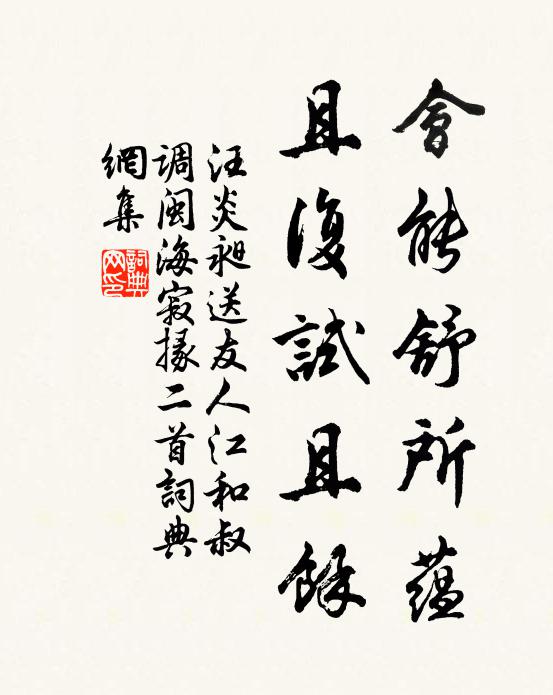 會能舒所蕴
且復試且餘
汪炎昶送友人江和叔
调闽海寂掾二首詞典
網集
詞典
网印